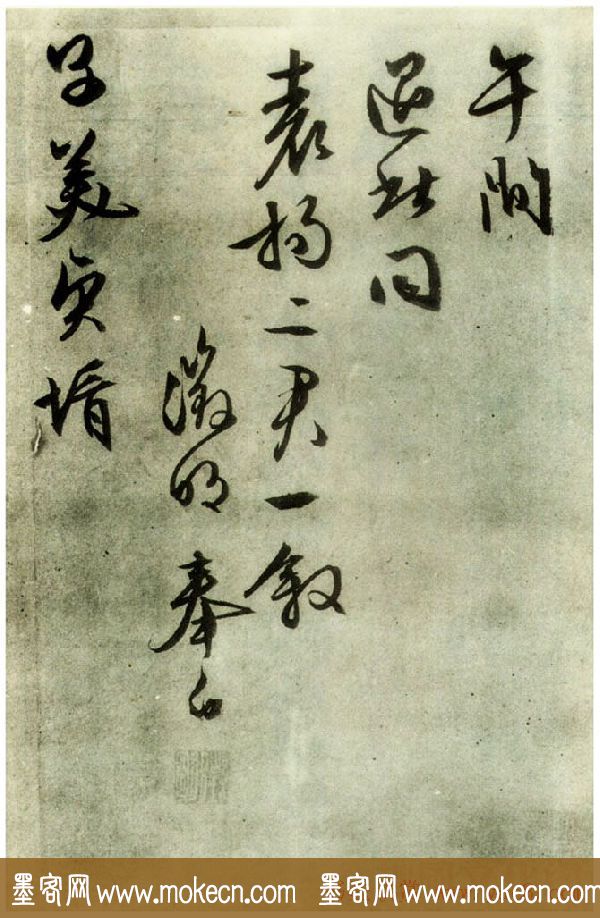 午間
過此同
袁楊二君一叙
徵明奉白
子美貞壻
墨客网 www.mokecn.com 墨客网 www.mokecn.com